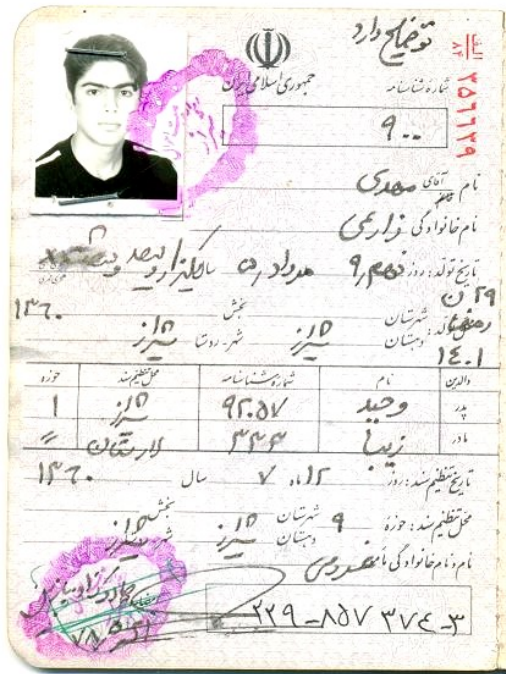 توضیح دارد
الف
۸۴
۲۵۶۶۲۹
جمهوری اسلامی ایران
شماره شناسنامه
۹۰۰
نام آقای مهدی
نام خانوادگی زارعی
تاریخ تولد: روز نهم ۹ مرداد ماه سال یکهزار و سیصد و شصت
۲۹
رمضان
۱۳۶۰
۱۴۰۱
محل تولد: شهرستان شیراز بخش
دهستان شهر-روستا شیراز
والدین نام شماره شناسنامه محل تنظیم سند حوزه
پدر وحید ۹۲۰۵۷ شیراز ۱
مادر زیبا ۳۴۳ لارستان
تاریخ تنظیم سند: روز ۱۲ ماه ۷ سال ۱۳۶۰
محل تنظیم سند: حوزه ۹ شهرستان شیراز بخش
دهستان شهر شیراز
نام و نام خانوادگی مأمور
۲۲۹-۸۵۷۳۷۴-۳